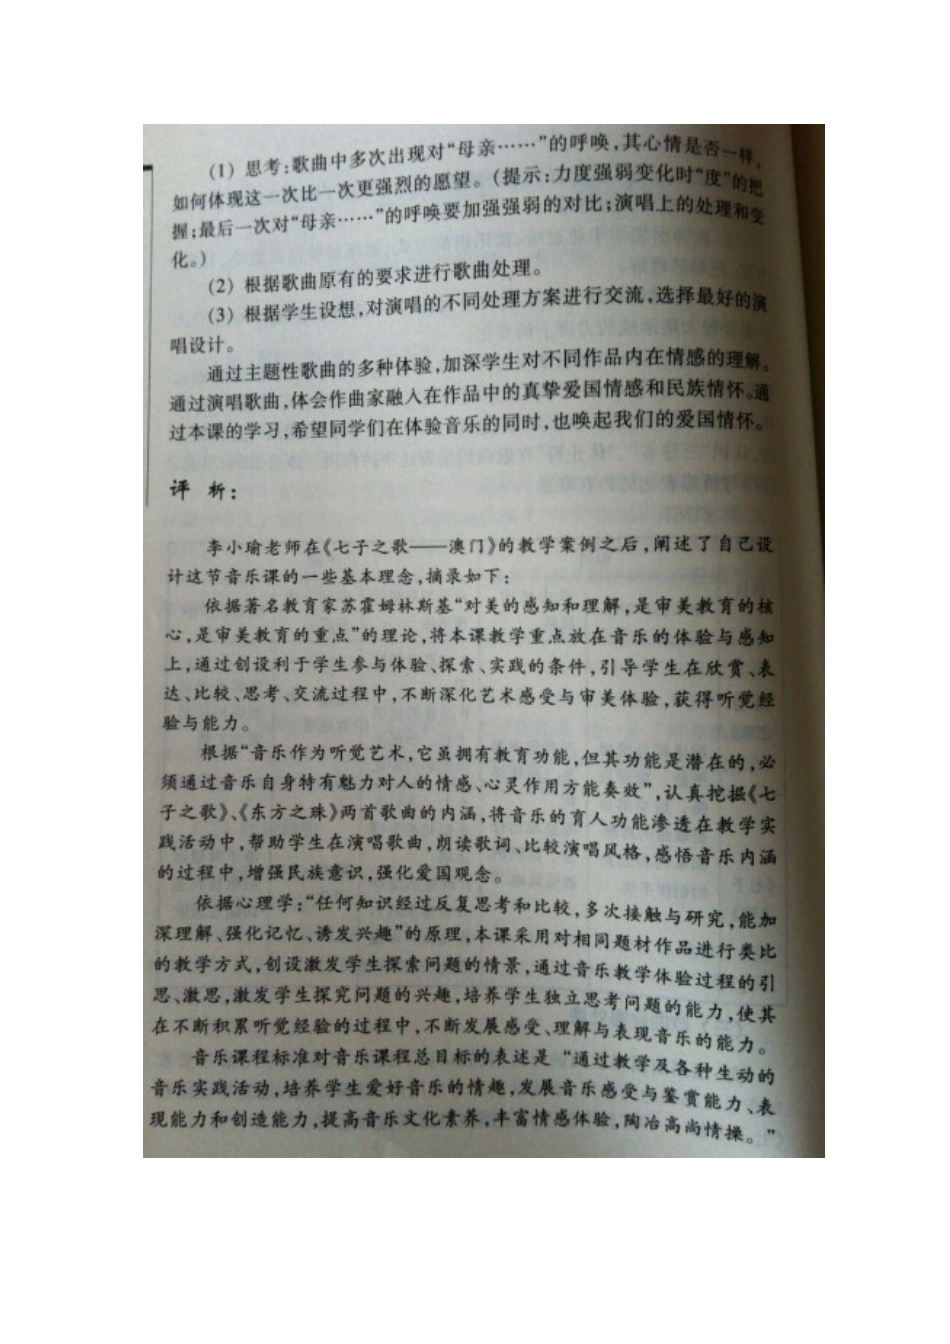 (1) 思考:歌曲中多次出现对“母亲……”的呼唤,其心情是否一样,
如何体现这一次比一次更强烈的愿望。(提示:力度强弱变化时“度”的把
握;最后一次对“母亲……”的呼唤要加强强弱的对比;演唱上的处理和变
化。)
(2) 根据歌曲原有的要求进行歌曲处理。
(3) 根据学生设想,对演唱的不同处理方案进行交流,选择最好的演
唱设计。
通过主题性歌曲的多种体验,加深学生对不同作品内在情感的理解。
通过演唱歌曲,体会作曲家融入在作品中的真挚爱国情感和民族情怀。通
过本课的学习,希望同学们在体验音乐的同时,也唤起我们的爱国情怀。
评 析:
李小瑜老师在《七子之歌——澳门》的教学案例之后,阐述了自己设
计这节音乐课的一些基本理念,摘录如下:
依据著名教育家苏霍姆林斯基“对美的感知和理解,是审美教育的核
心,是审美教育的重点”的理论,将本课教学重点放在音乐的体验与感知
上,通过创设利于学生参与体验、探索、实践的条件,引导学生在欣赏、表
达、比较、思考、交流过程中,不断深化艺术感受与审美体验,获得听觉经
验与能力。
根据“音乐作为听觉艺术,它虽拥有教育功能,但其功能是潜在的,必
须通过音乐自身特有魅力对人的情感、心灵作用方能奏效”,认真挖掘《七
子之歌》、《东方之珠》两首歌曲的内涵,将音乐的育人功能渗透在教学实
践活动中,帮助学生在演唱歌曲,朗读歌词、比较演唱风格,感悟音乐内涵
的过程中,增强民族意识,强化爱国观念。
依据心理学:“任何知识经过反复思考和比较,多次接触与研究,能加
深理解、强化记忆、诱发兴趣”的原理,本课采用对相同题材作品进行类比
的教学方式,创设激发学生探索问题的情景,通过音乐教学体验过程的引
思、激思,激发学生探究问题的兴趣,培养学生独立思考问题的能力,使其
在不断积累听觉经验的过程中,不断发展感受、理解与表现音乐的能力。
音乐课程标准对音乐课程总目标的表述是 “通过教学及各种生动的
音乐实践活动,培养学生爱好音乐的情趣,发展音乐感受与鉴赏能力、表
现能力和创造能力,提高音乐文化素养,丰富情感体验,陶冶高尚情操。”